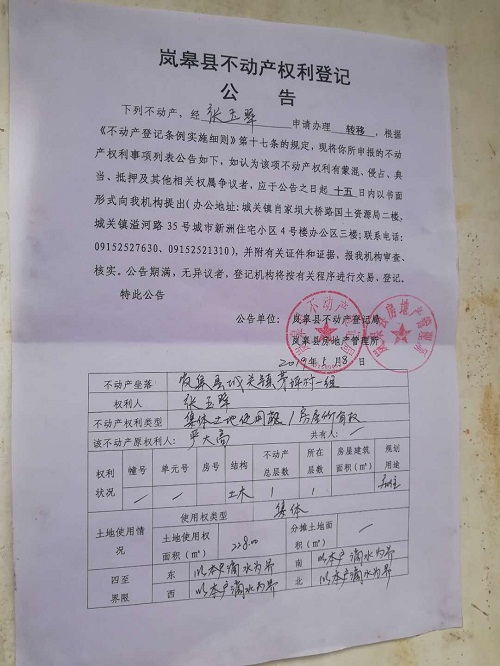 岚皋县不动产权利登记
公 告
下列不动产，经 张玉 申请办理 转移，根据
《不动产登记条例实施细则》第十七条的规定，现将你所申报的不动
产权利事项列表公告如下，如认为该项不动产权利有蒙混、侵占、典
当、抵押及其他相关权属争议者，应于公告之日起 十五 日内以书面
形式向我机构提出（办公地址：城关镇肖家坝大桥路国土资源局二楼，
城关镇溢河路 35 号城市新洲住宅小区 4 号楼办公区三楼；联系电话：
09152527630、09152521310），并附有关证件和证据，报我机构审查、
核实。公告期满，无异议者，登记机构将按有关程序进行交易、登记。
特此公告
公告单位：岚皋县不动产登记局
岚皋县房地产管理所
2019年5月8日
不动产坐落 岚皋县城关镇 坪村一组
权利人 张玉
不动产权利类型 集体土地使用权/房屋所有权
该不动产原权利人：严大高 共有人：一
权利状况 幢号 单元号 房号 结构 不动产总层数 所在层数 房屋建筑面积（㎡） 规划用途
/ 一 / 土木 1 1 住
土地使用情况 使用权类型 集体
土地使用权面积（㎡） 228.00 分摊土地面积（㎡） 一
四至界限 东 以本户滴水为界 南 以本户滴水为界
西 以本户滴水为界 北 以本户滴水为界